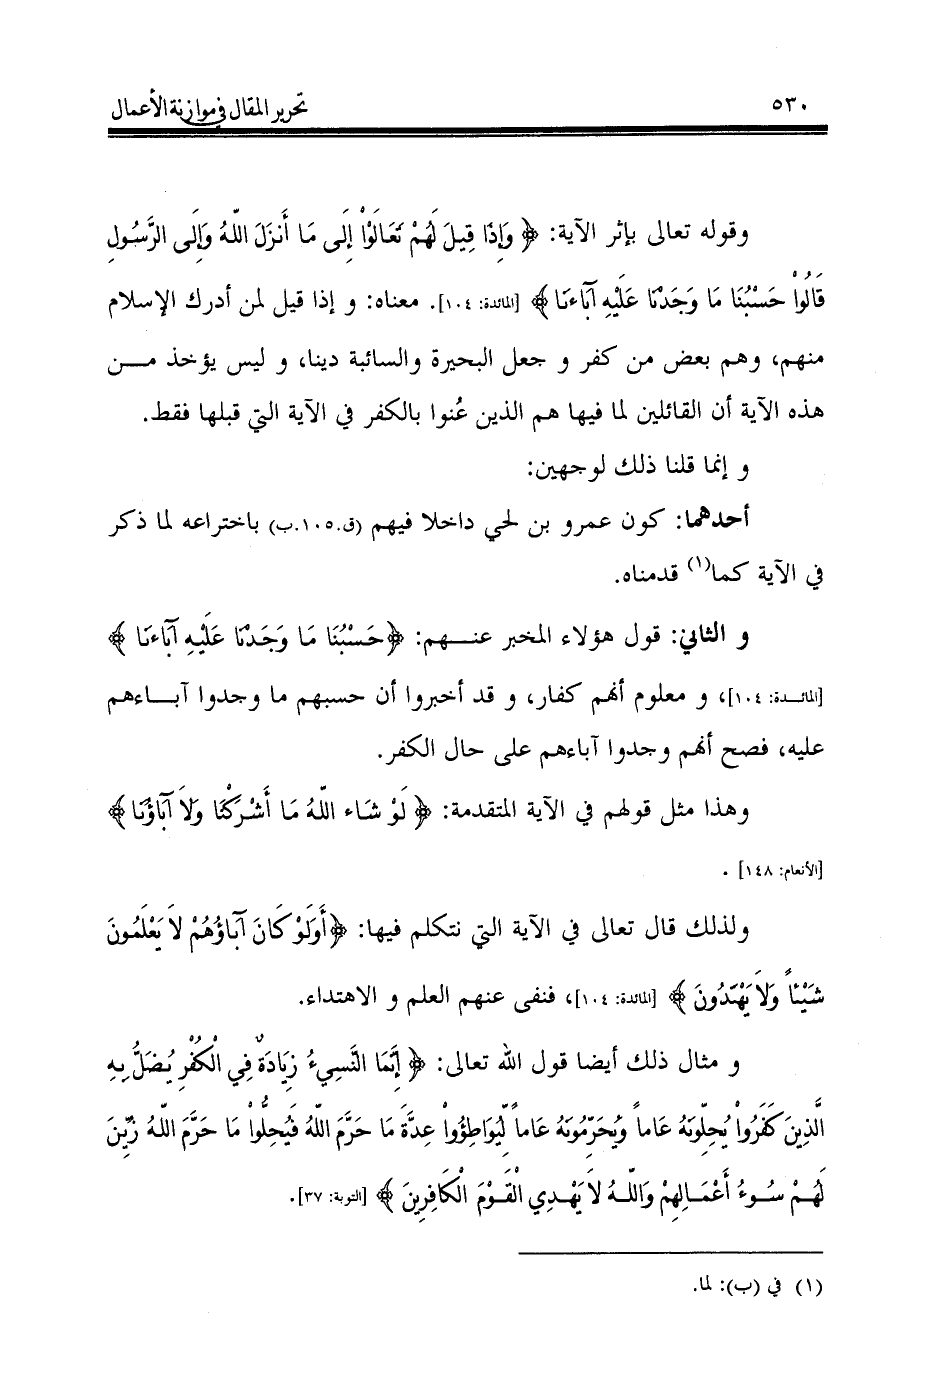 ٥٣٠ تحرير المقال في موازنة الأعمال
وقوله تعالى بإثر الآية: ﴿ وَإِذَا قِيلَ لَهُمْ تَعَالَوْا إِلَى مَا أَنزَلَ اللّهُ وَإِلَى الرَّسُولِ
قَالُواْ حَسْبُنَا مَا وَجَدْنَا عَلَيْهِ آبَاءنَا ﴾ [المائدة: ١٠٤]. معناه: و إذا قيل لمن أدرك الإسلام
منهم، وهم بعض من كفر و جعل البحيرة والسائبة دينا، و ليس يؤخذ مــن
هذه الآية أن القائلين لما فيها هم الذين عُنوا بالكفر في الآية التي قبلها فقط.
و إنما قلنا ذلك لوجهين:
أحدهما: كون عمرو بن لحي داخلا فيهم (ق.١٠٥.ب) باختراعه لما ذكر
في الآية كما(١) قدمناه.
و الثاني: قول هؤلاء المخبر عنــهم: ﴿حَسْبُنَا مَا وَجَدْنَا عَلَيْهِ آبَاءنَا ﴾
[المائـدة: ١٠٤]، و معلوم أنهم كفار، و قد أخبروا أن حسبهم ما وجدوا آبــاءهم
عليه، فصح أنهم وجدوا آباءهم على حال الكفر.
وهذا مثل قولهم في الآية المتقدمة: ﴿ لَوْ شَاء اللّهُ مَا أَشْرَكْنَا وَلاَ آبَاؤُنَا ﴾
[الأنعام: ١٤٨] .
ولذلك قال تعالى في الآية التي نتكلم فيها: ﴿أَوَلَوْ كَانَ آبَاؤُهُمْ لاَ يَعْلَمُونَ
شَيْئاً وَلاَ يَهْتَدُونَ ﴾ [المائدة: ١٠٤]، فنفى عنهم العلم و الاهتداء.
و مثال ذلك أيضا قول الله تعالى: ﴿ إِنَّمَا النَّسِيءُ زِيَادَةٌ فِي الْكُفْرِ يُضَلُّ بِهِ
الَّذِينَ كَفَرُواْ يُحِلِّونَهُ عَاماً وَيُحَرِّمُونَهُ عَاماً لِّيُوَاطِؤُواْ عِدَّةَ مَا حَرَّمَ اللّهُ فَيُحِلُّواْ مَا حَرَّمَ اللّهُ زُيِّنَ
لَهُمْ سُـوءُ أَعْمَـالِهِمْ وَاللّـهُ لاَ يَهْـدِي الْقَوْمَ الْكَافِرِينَ ﴾ [التوبة: ٣٧].
(١) في (ب): لما.